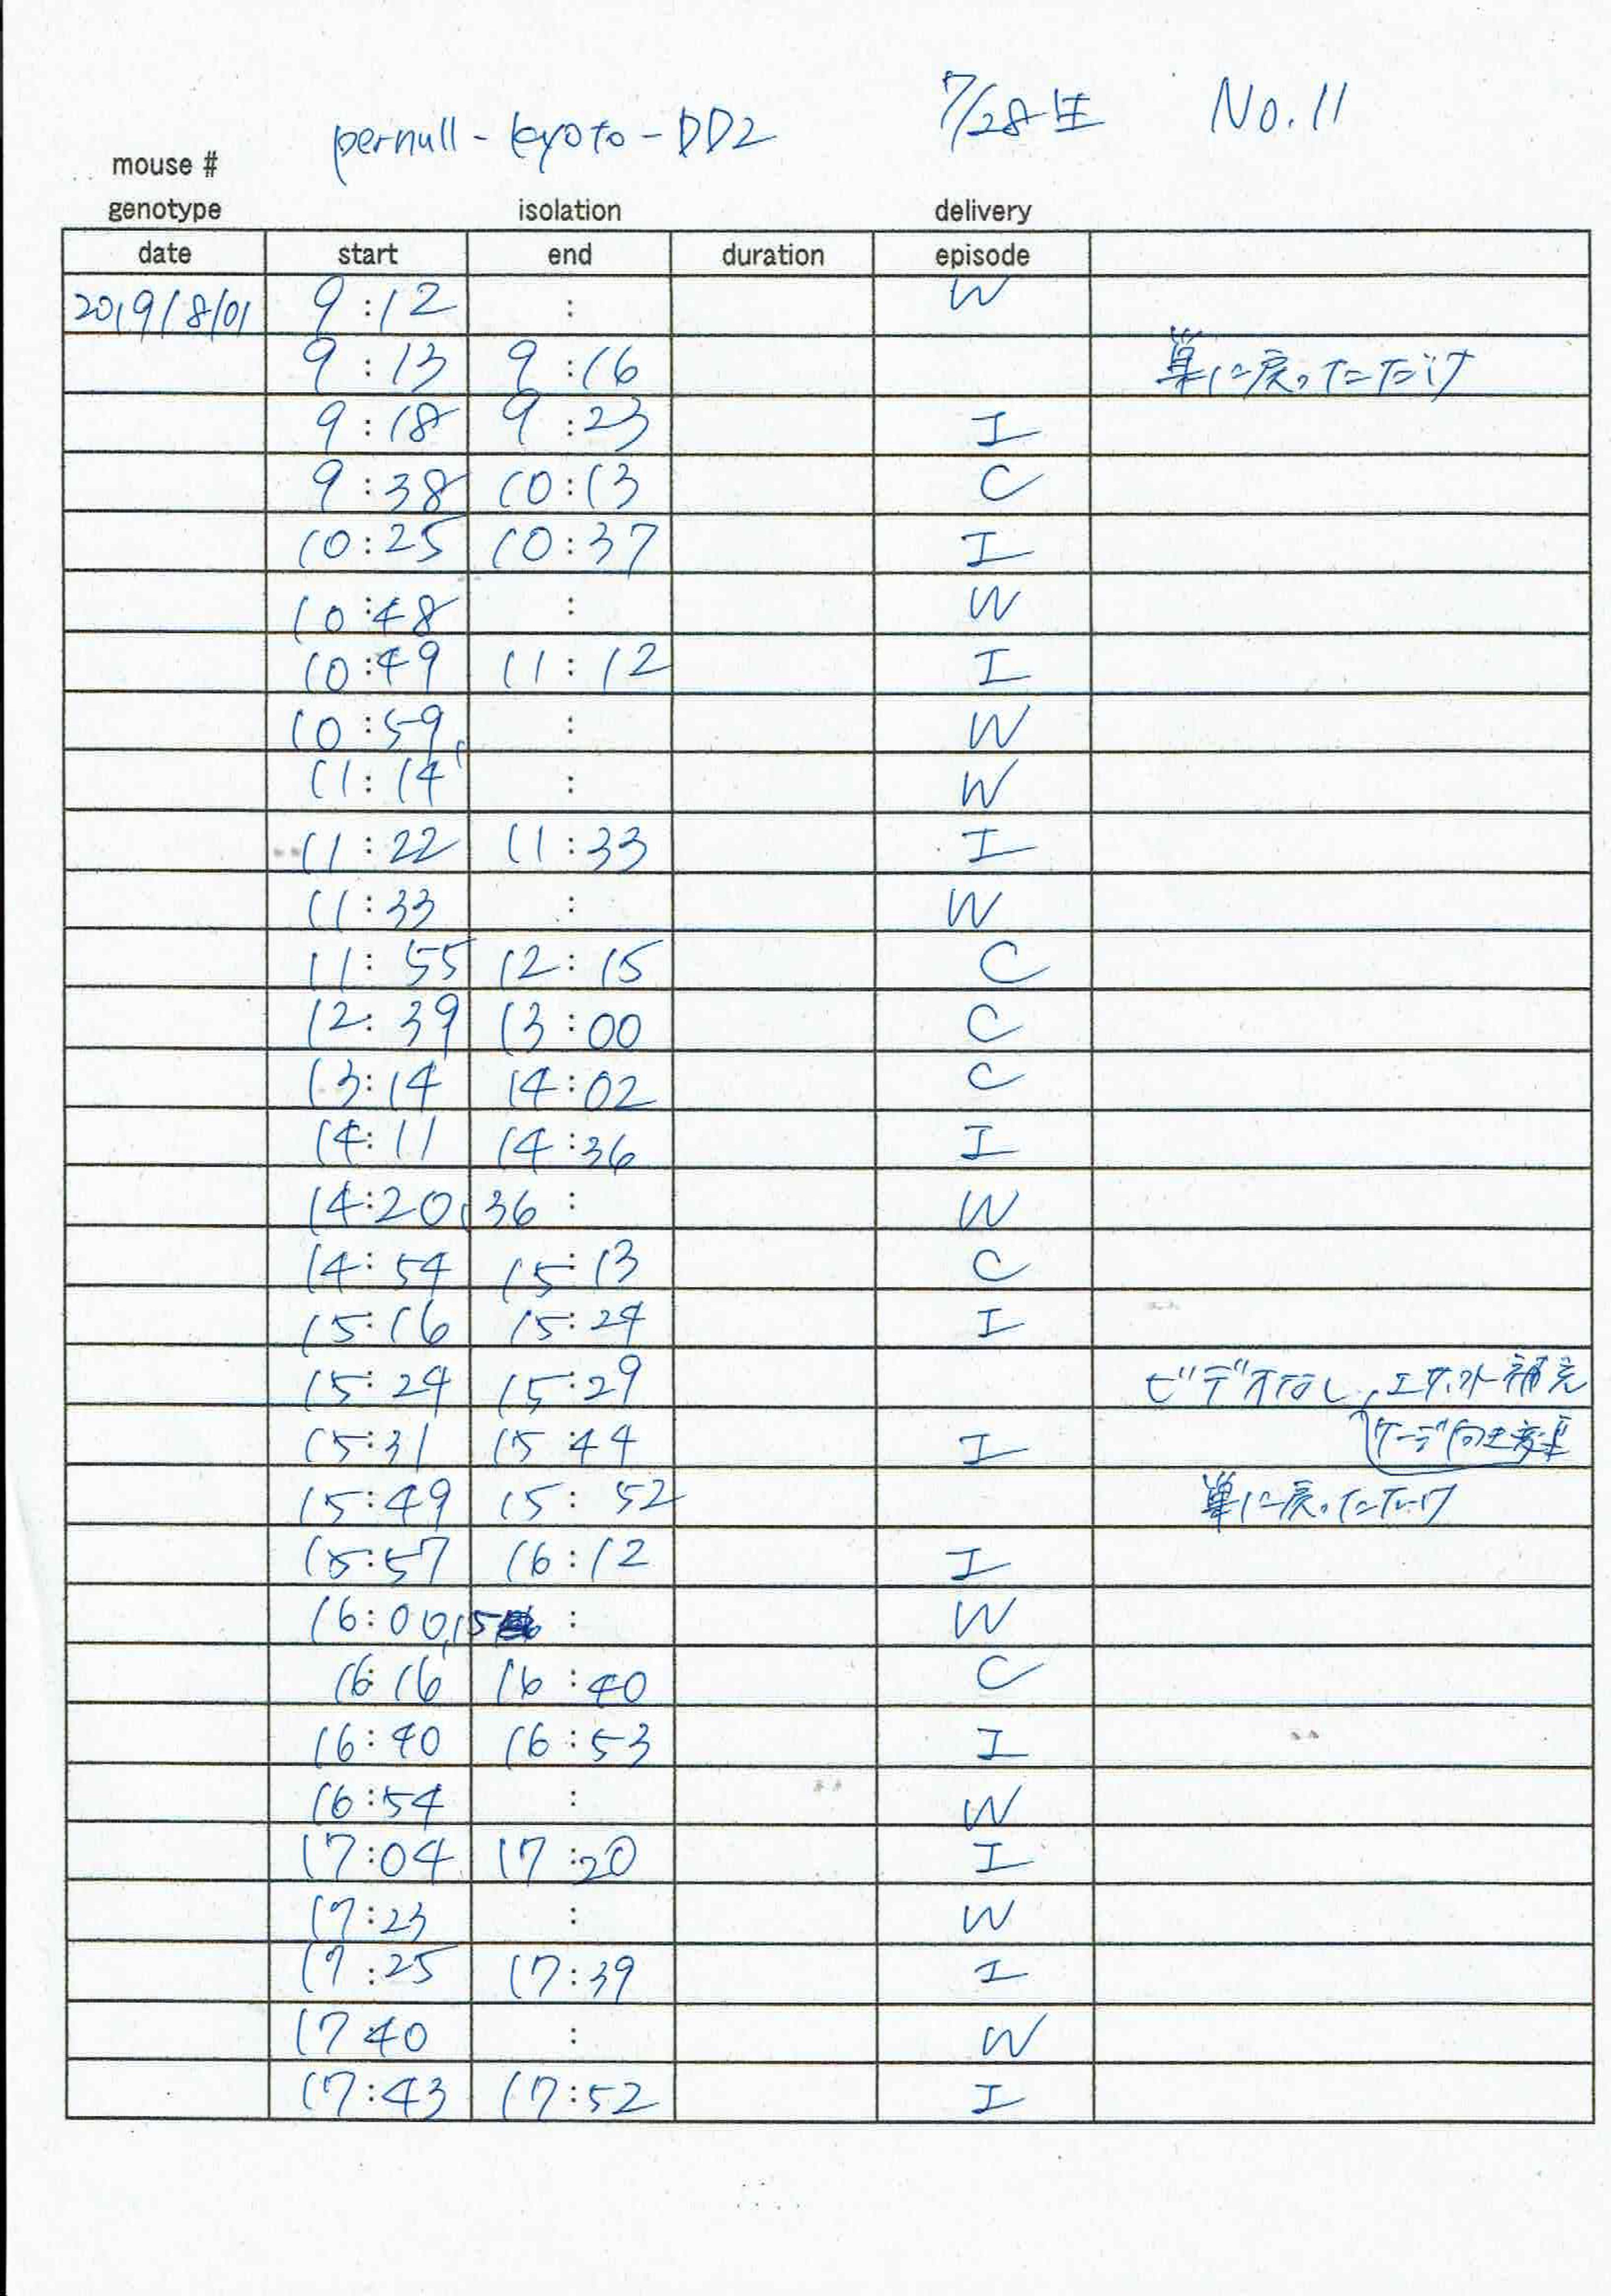 7/28生 No.11
pernull-kyoto-DD2
mouse #
genotype isolation delivery
date start end duration episode
2019/8/01 9:12 : W
9:13 9:16 巣に戻っただけ
9:18 9:23 I
9:38 10:13 C
10:25 10:37 I
10:48 : W
10:49 11:12 I
10:59, : W
11:14 : W
11:22 11:33 I
11:33 : W
11:55 12:15 C
12:39 13:00 C
13:14 14:02 C
14:11 14:36 I
14:20,36 : W
14:54 15:13 C
15:16 15:24 I
15:24 15:29 ビデオ 補充
15:31 15:44 I 向き変更
15:49 15:52 巣に戻っただけ
15:57 16:12 I
16:00,15 : W
16:16 16:40 C
16:40 16:53 I
16:54 : W
17:04 17:20 I
17:23 : W
17:25 17:39 I
17 40 : W
17:43 17:52 I